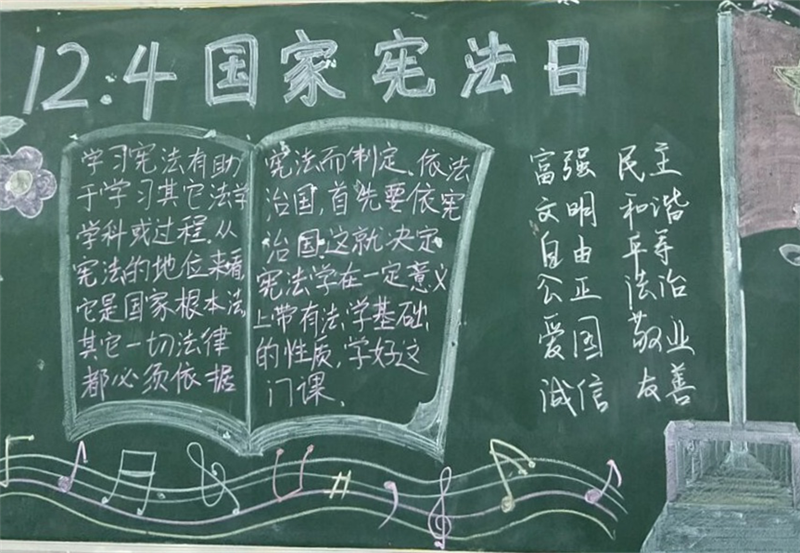 12.4国家宪法日
学习宪法有助
于学习其它法学
学科或过程.从
宪法的地位来看
它是国家根本法
其它一切法律
都必须依据
宪法而制定、依法
治国,首先要依宪
治国.这就决定
宪法学在一定意义
上带有法学基础
的性质,学好这
门课.
富强 民主
文明 和谐
自由 平等
公正 法治
爱国 敬业
诚信 友善